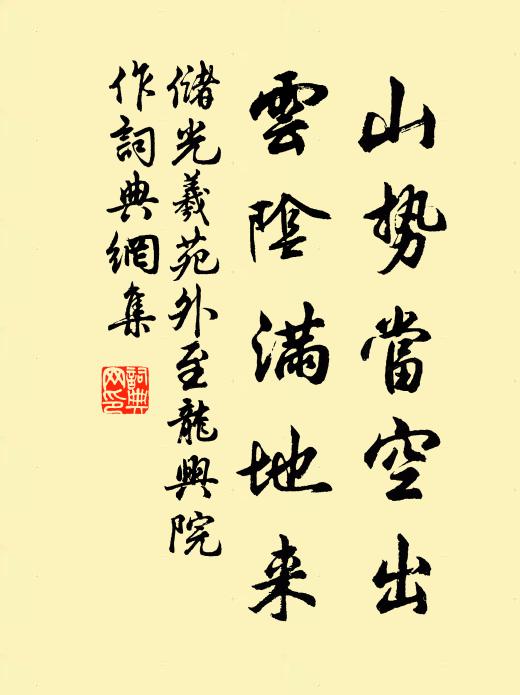 山勢當空出
雲陰滿地来
儲光羲苑外至龍興院
作詞典網集
詞典
网印